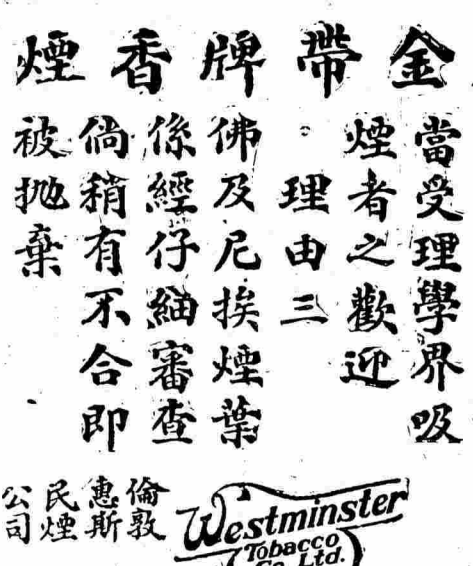 金帶牌香煙
當受理學界吸
煙者之歡迎
理由三
佛及尼挨煙葉
係經仔細審查
倘稍有不合即
被拋棄
倫敦
惠斯
民煙
公司
Westminster
Tobacco
Co. Ltd.